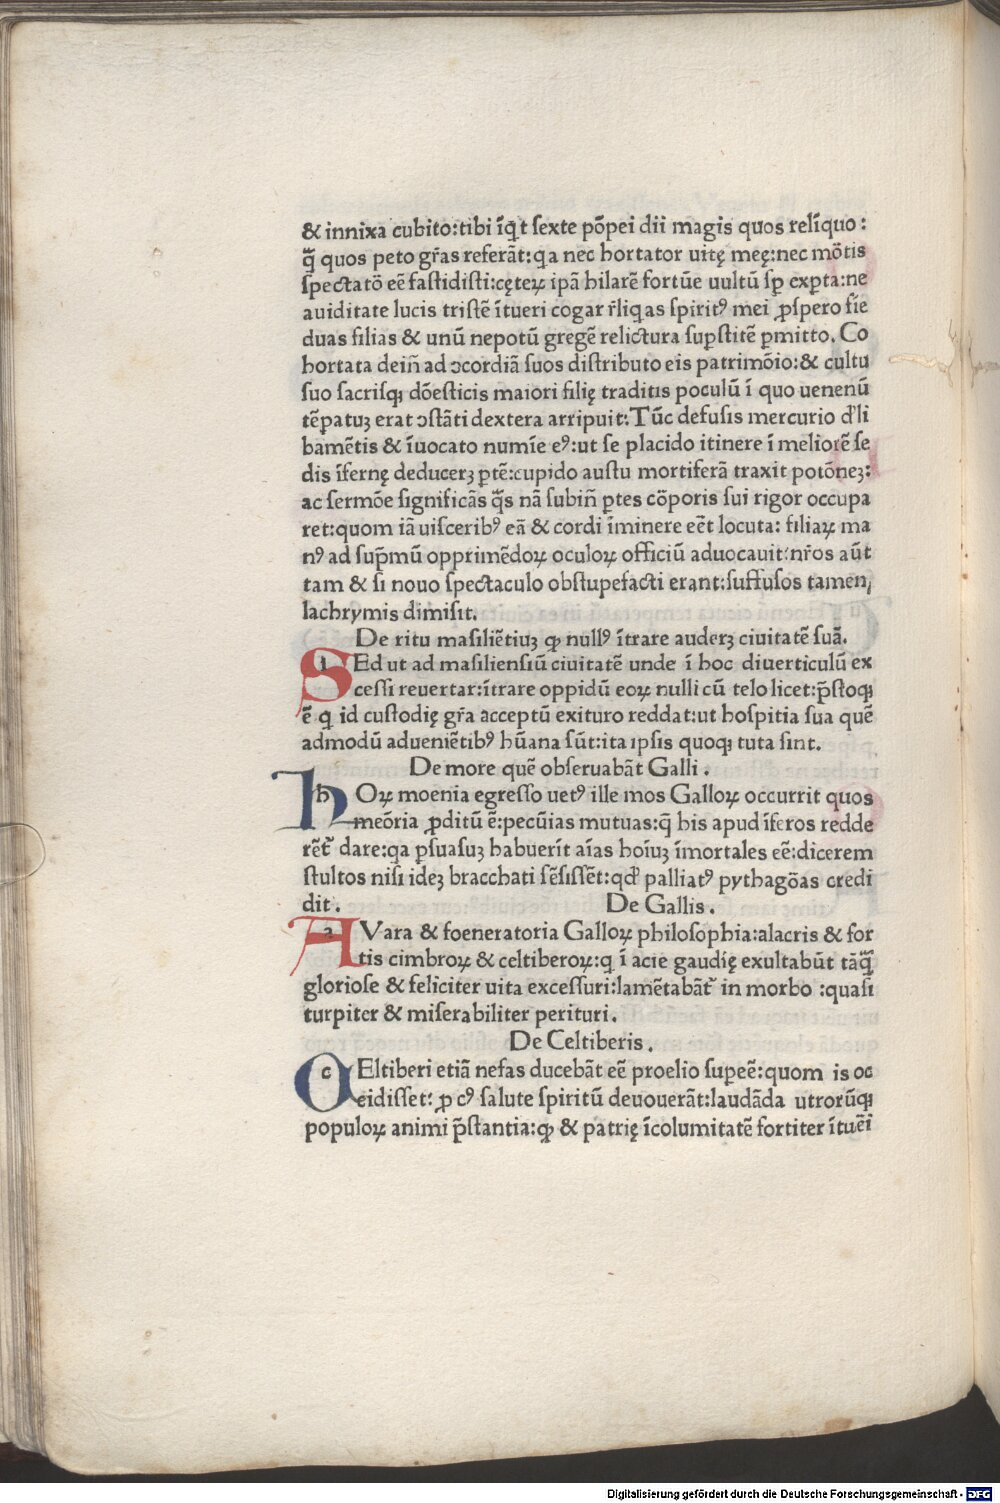 & innixa cubito:tibi īq̄t ſexte pōpei dii magis quos relīquo:
q̄ꝫ quos peto gr̄as referāt:qa nec hortator uitę meę:nec mōtis
ſpectatō eē faſtidiſti:cęteꝝ ipā hilarē fortūe uultū ſp̱ exp̱ta:ne
auiditate lucis triſtē ītueri cogar r̄liqas ſpirit⁹ mei ꝓſpero fīe
duas filias & unū nepotū gregē relictura ſuꝑſtitē ꝑmitto. Co
hortata dein̄ ad ↄcordiā ſuos diſtributo eis patrimōio:& cultu
ſuo ſacriſqꝫ dōeſticis maiori filię traditis poculū ī quo uenenū
tēꝑatuꝫ erat ↄſtāti dextera arripuit:Tūc defuſis mercurio d'li
bamētis & īuocato numīe e⁹:ut ſe placido itinere ī meliorē ſe
dis īfernę deducerꝫ ꝑtē:cupido auſtu mortiferā traxit potōneꝫ:
ac ſermōe ſignificās q̄s nā ſubin̄ ꝑtes cōporis ſui rigor occupa
ret:quom iā uiſcerib⁹ eā & cordi īminere eēt locuta: filiaꝝ ma
n⁹ ad ſup̄mū opprimēdoꝝ oculoꝝ officiū aduocauit:nr̄os aūt
tam & ſi nouo ſpectaculo obſtupefacti erant:ſuffuſos tamen
lachrymis dimiſit.
De ritu maſiliētiuꝫ qꝫ null⁹ ītrare auderꝫ ciuitatē ſuā.
SEd ut ad maſilienſiū ciuitatē unde ī hoc diuerticulū ex
ceſſi reuertar:ītrare oppidū eoꝝ nulli cū telo licet:p̄ſtoqꝫ
ē q id cuſtodię gr̄a acceptū exituro reddat:ut hoſpitia ſua quē
admodū adueniētib⁹ hūana ſūt:ita ipſis quoqꝫ tuta ſint.
De more quē obſeruabāt Galli.
hOꝝ moenia egreſſo uet⁹ ille mos Galloꝝ occurrit quos
meōria ꝓditū ē:pecūias mutuas:q̄ his apud īferos redde
rēt' dare:qa ꝑſuaſuꝫ habuerīt aīas hoīuꝫ īmortales eē:dicerem
ſtultos niſi ideꝫ bracchati ſēſiſſēt:qd' palliat⁹ pythagōas credi
dit. De Gallis.
AVara & foeneratoria Galloꝝ philoſophia:alacris & for
tis cimbroꝝ & celtiberoꝝ:q ī acie gaudīę exultabūt tāq̄ꝫ
glorioſe & feliciter uita exceſſuri:lamētabāt' in morbo :quaſi
turpiter & miſerabiliter perituri.
De Celtiberis.
CEltiberi etiā nefas ducebāt eē proelio ſupeē:quom is oc
cidiſſet: ꝓ c⁹ ſalute ſpiritū deuouerāt:laudāda utrorūqꝫ
populoꝝ animi p̄ſtantia:qꝫ & patrię īcolumitatē fortiter ītuēi
Digitalisierung gefördert durch die Deutsche Forschungsgemeinschaft - DFG